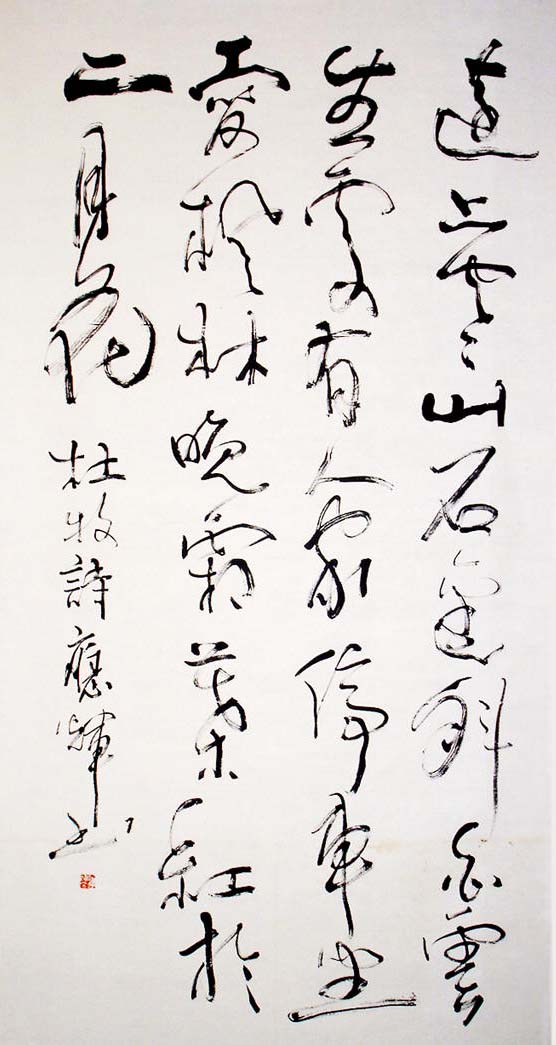 遠上寒山石徑斜白雲
生處有人家停車坐
愛楓林晚霜葉紅於
二月花 杜牧詩應輝书